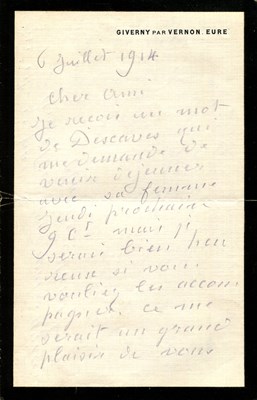 GIVERNY PAR VERNON. EURE
6 juillet 1914
cher ami
Je reçois un mot
de Descaves qui
me demande de
venir déjeuner
avec sa femme
jeudi prochain
9 Ct. mais je
serais bien heu
reux si vous
vouliez les accom
pagner. ce me
serait un grand
plaisir de vous